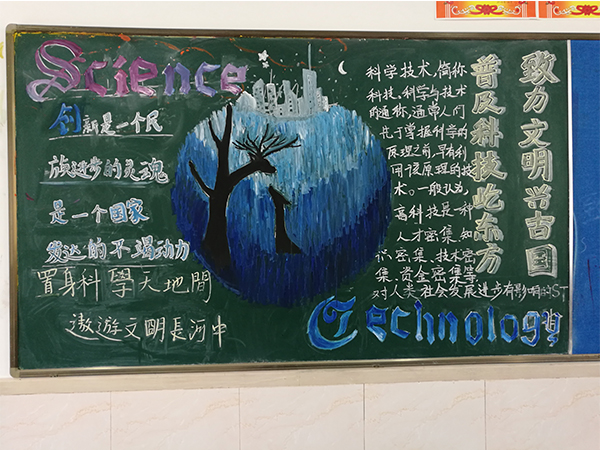 Science
创新是一个民
族进步的灵魂
是一个国家
发达的不竭动力
置身科學天地間
遨遊文明長河中
科学技术,简称
科技,科学与技术
的通称,通常人们
先于掌握科学的
原理之前,早有利
用该原理的技
术。一般认为,
高科技是一种
人才密集、知
识密集、技术密
集、资金密集等
对人类社会发展进步有影响的ST
普及科技屹东方
致力文明兴古国
Technology